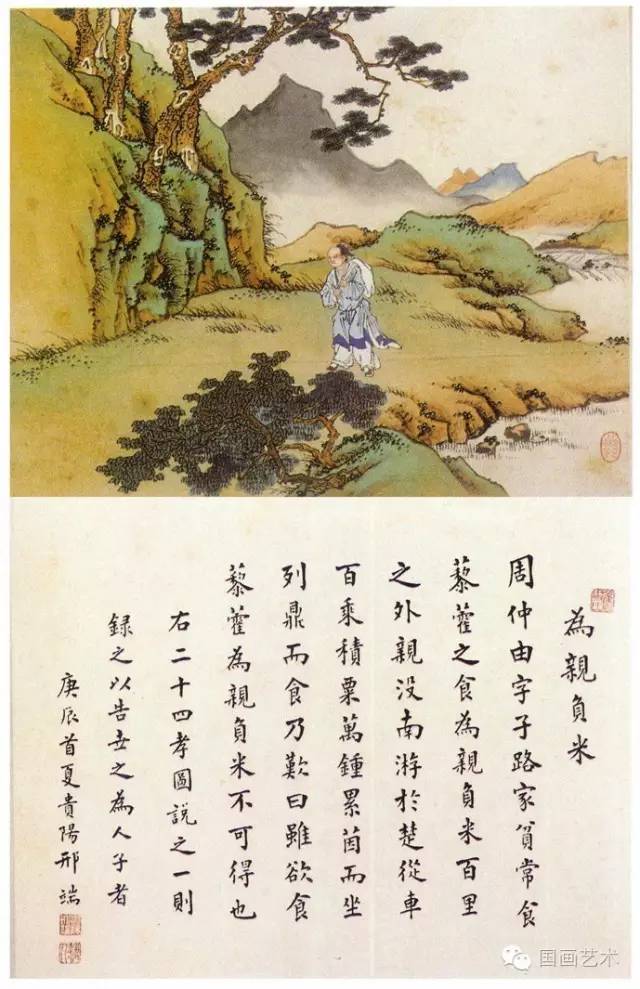 為親負米
周仲由字子路家貧常食
藜藿之食為親負米百里
之外親没南游於楚從車
百乘積粟萬鍾累茵而坐
列鼎而食乃歎曰雖欲食
藜藿為親負米不可得也
右二十四孝圖説之一則
録之以告世之為人子者
庚辰首夏貴陽邢端
国画艺术